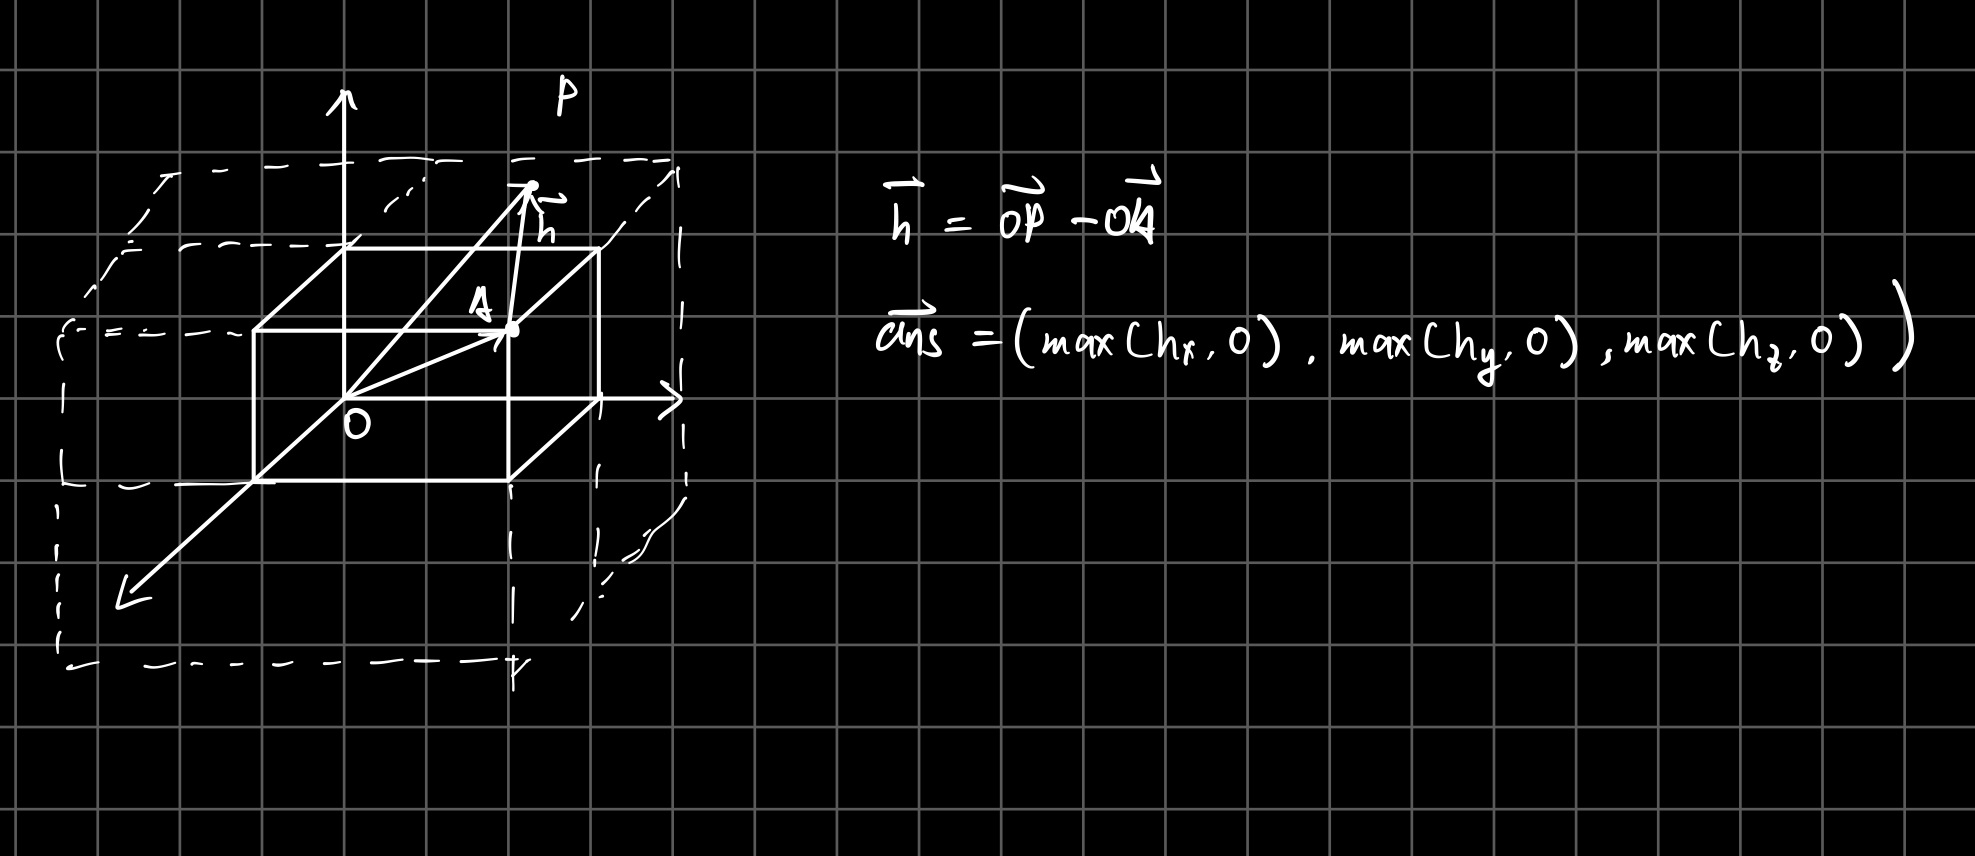 P
h⃗
A
O
h⃗ = OP⃗ - OA⃗
ans⃗ = (max(hx, 0), max(hy, 0), max(hz, 0))